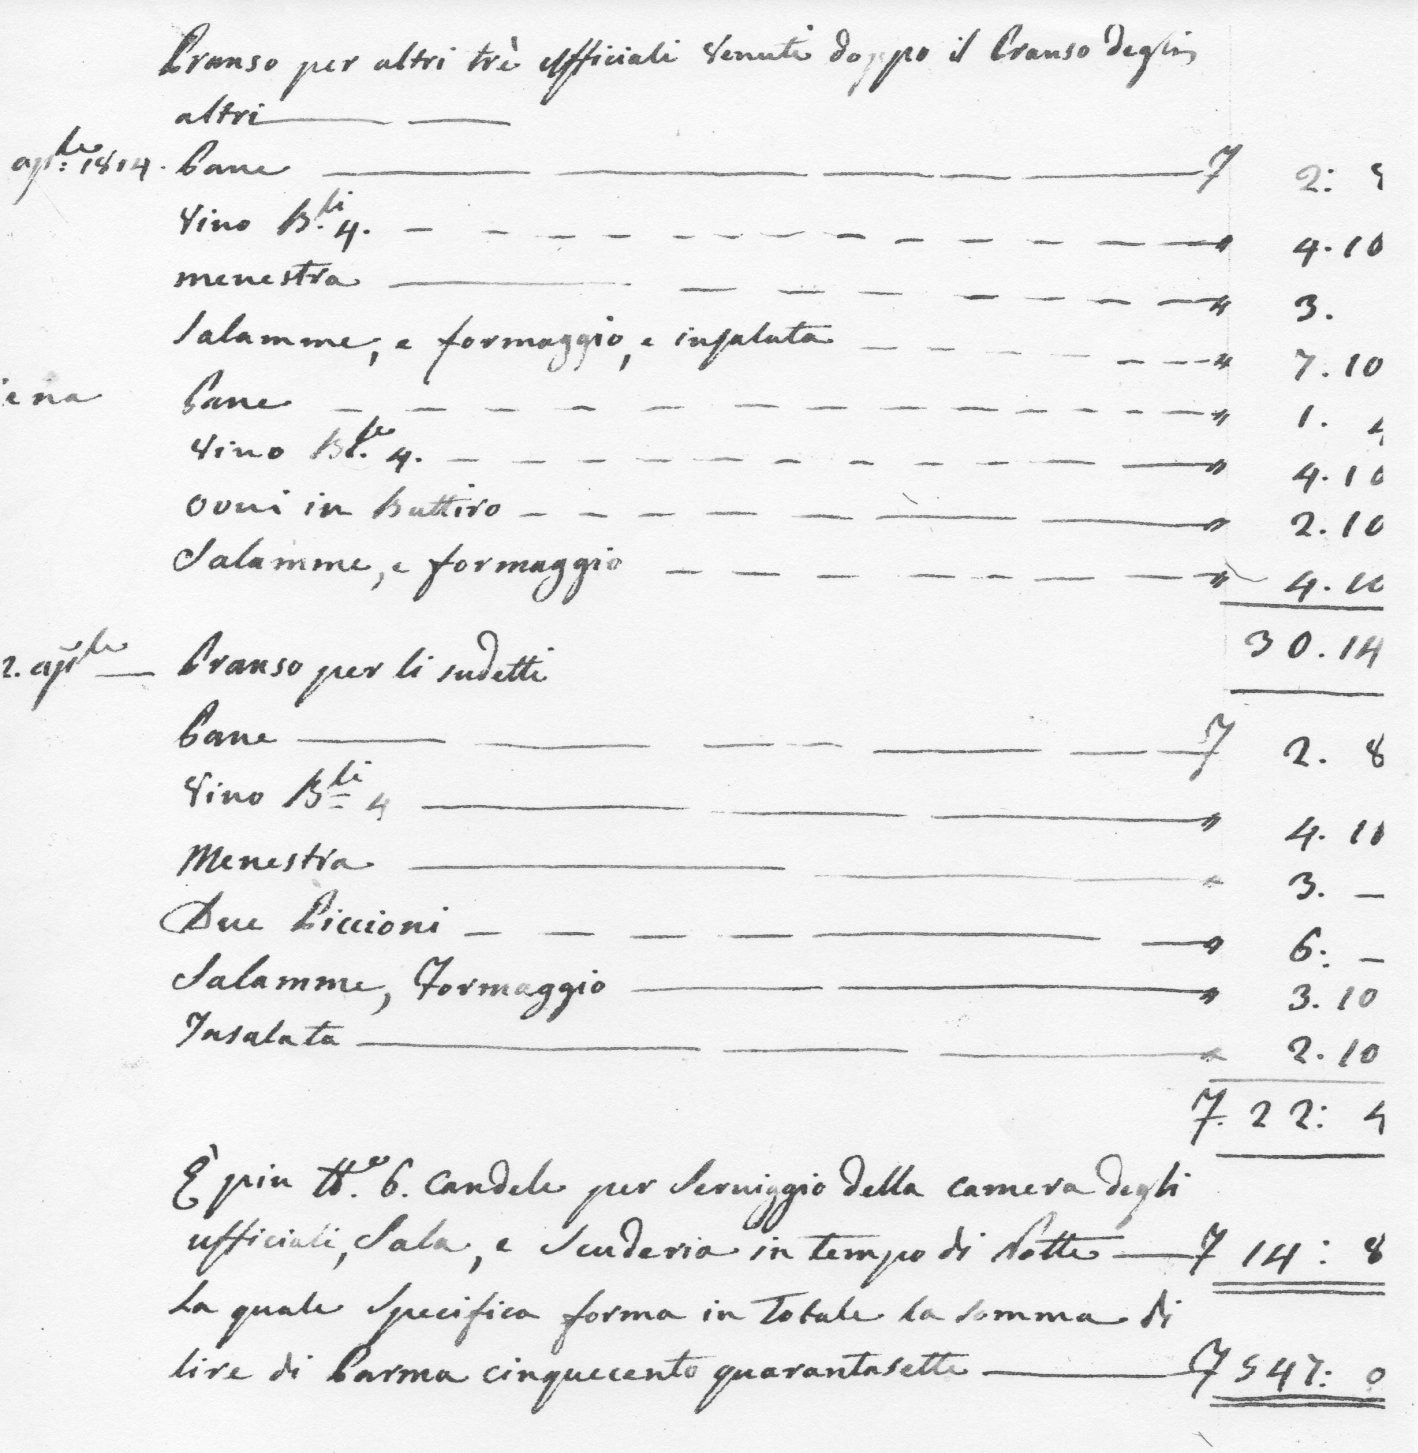 Pranso per altri trè ufficiali venuti doppo il Pranso degli
altri
aple: 1814. Pane 7 2: 5
Vino B.li 4. " 4.10
menestra " 3.
Salamme, e formaggio, e insalata " 7.10
Pane " 1. 4
Vino B.le 4. " 4.10
ovvi in Buttiro " 2.10
Salamme, e formaggio " 4.10
30.14
2. aple Pranso per li sudetti
Pane 7 2. 8
Vino B.li 4 " 4. 10
Menestra " 3. —
Due Piccioni " 6: —
Salamme, Formaggio " 3.10
Insalata " 2.10
7. 22: 4
È piu 6. Candele per Serviggio della camera degli
ufficiali, Sala, e Scuderia in tempo di Notte 7 14: 8
La quale Specifica forma in Totale la Somma di
lire di Parma cinquecento quarantasette 7 547: 0